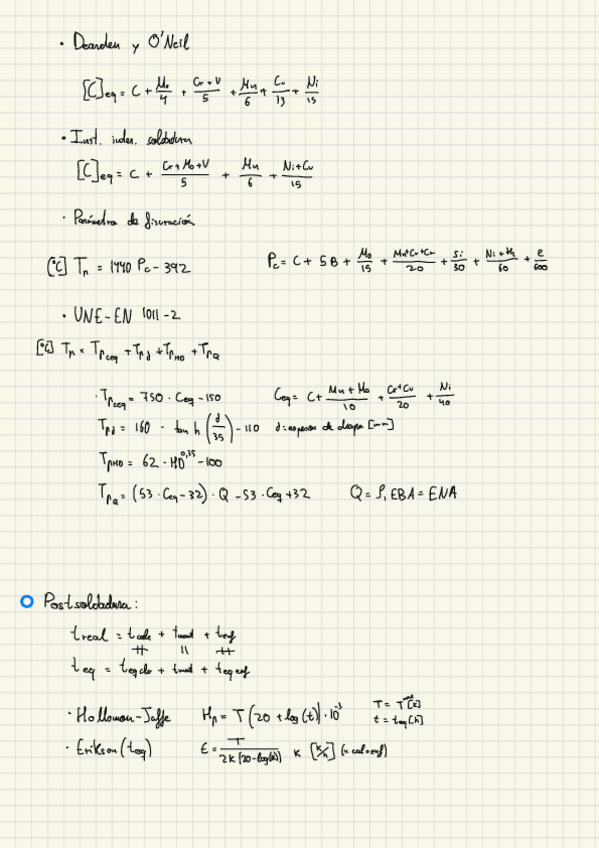 • Dearden y O'Neil
[C]eq = C + Mo/4 + (Cr+V)/5 + Mn/6 + Cu/13 + Ni/15
• Inst. inter. soldadura
[C]eq = C + (Cr+Mo+V)/5 + Mn/6 + (Ni+Cu)/15
• Parámetro de fisuración
[°C] Tp = 1440 Pc - 392 Pc = C + 5B + Mo/15 + (Mn+Cu+Cr)/20 + Si/30 + /60 + e/600
• UNE-EN 1011-2
[°C] Tp = Tpceq + Tpd + TpHD + TpQ
• Tpceq = 750 · Ceq - 150 Ceq = C + (Mn+Mo)/10 + (Cr+Cu)/20 + Ni/40
Tpd = 160 · tanh (d/35) - 110 d: espesor de chapa [mm]
TpHD = 62 · HD^0,35 - 100
TpQ = (53 · Ceq - 32) · Q - 53 · Ceq + 32 Q = , EBA = ENA
Postsoldadura:
treal = tcale + tmant + tenf
teq = teq cale + tmant + teq enf
• Hollomon-Jaffe Hp = T (20 + log(t)) · 10^-3 T = T^mant [K]
t = teq [h]
• Erikson (teq) E = T/(2K(20-log(K))) K [K/h] (v. cal o enf)